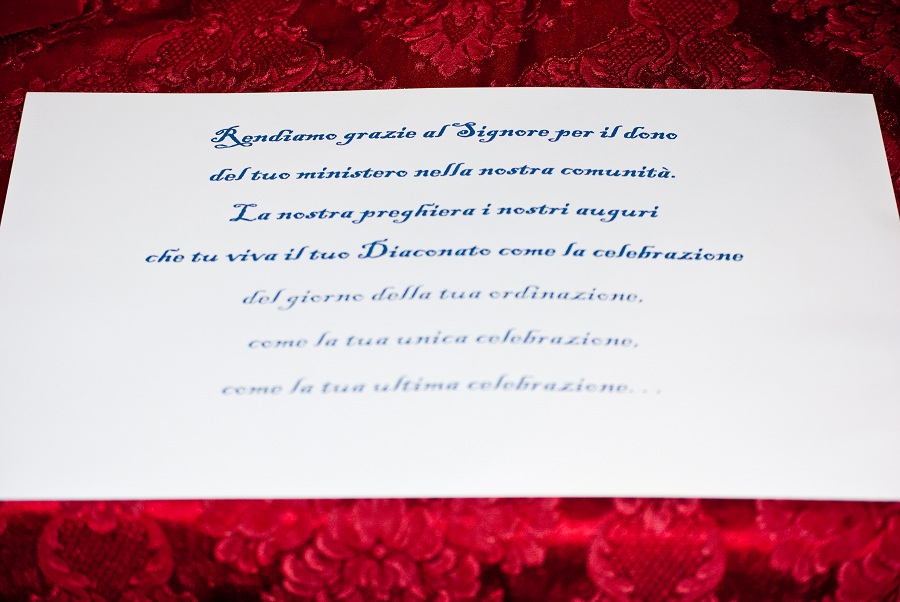 Rendiamo grazie al Signore per il dono
del tuo ministero nella nostra comunità.
La nostra preghiera i nostri auguri
che tu viva il tuo Diaconato come la celebrazione
del giorno della tua ordinazione,
come la tua unica celebrazione,
come la tua ultima celebrazione...